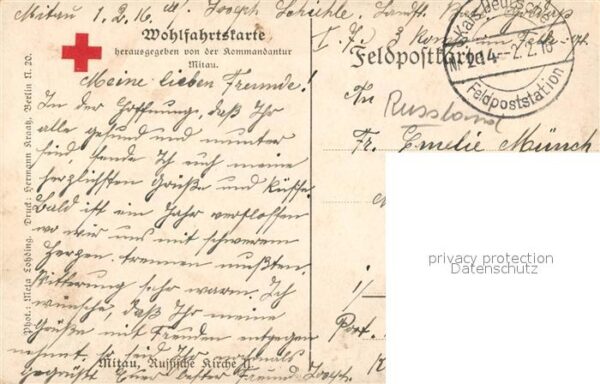 Mitau 1.2.16. Joseph
Wohlfahrtskarte
herausgegeben von der Kommandantur
Mitau.
Meine lieben Freunde!
In der Hoffnung, daß Ihr
alle gesund und munter
seid, sende Ich euch meine
herzlichsten Grüße und Küsse.
Bald ist ein Jahr verflossen
wo wir uns mit schwerem
Herzen trennen mußten.
Witterung sehr warm. Ich
wünsche, daß Ihr meine
Grüße mit Freuden entgegen
nehmt. so seid Ihr nochmals
gegrüßt Euer bester Freund Joseph.
Mitau, Russische Kirche II.
Phot.: Meta Lohding. Druck: Hermann Kraatz, Berlin N. 20.
Feldpostkarte
Kais. deutsche
Nr. 214 - 2.2.16
Feldpoststation
An
Russland
Fr. Emelie Münch
privacy protection
Datenschutz
Port.